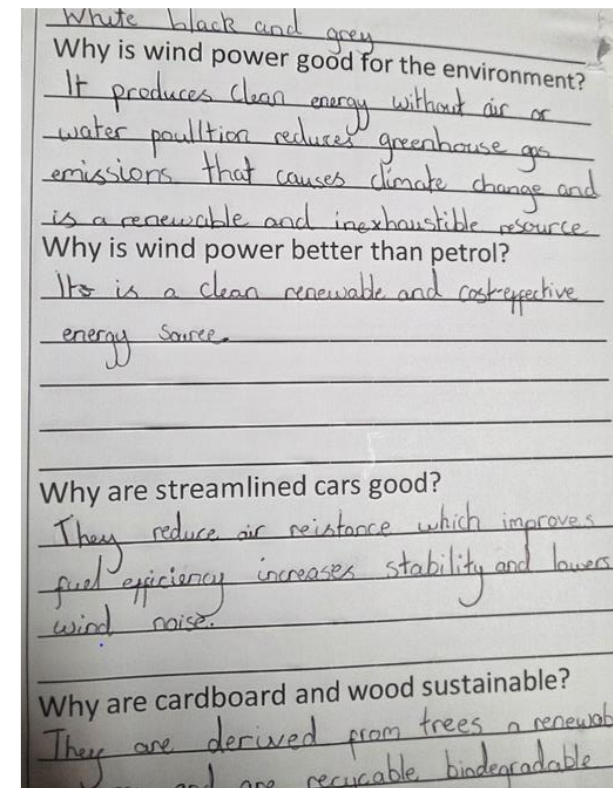 White black and grey
Why is wind power good for the environment?
It produces clean energy without air or
water poulltion reduces greenhouse gas
emissions that causes climate change and
is a renewable and inexhaustible resource
Why is wind power better than petrol?
Its is a clean renewable and cost-effective
energy source.
Why are streamlined cars good?
They reduce air reistance which improves
fuel efficiency increases stability and lowers
wind noise.
Why are cardboard and wood sustainable?
They are derived from trees a renewab
and are recycable biodegradable